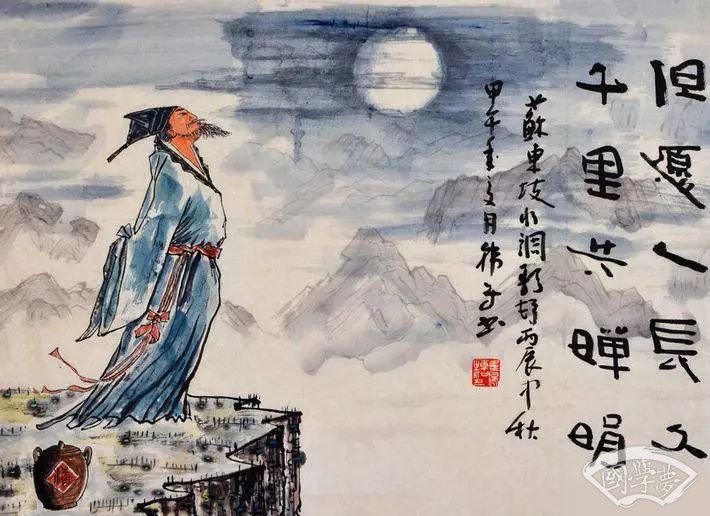 但愿人長久
千里共嬋娟
蘇東坡水調歌頭丙辰中秋
甲午
月
國學夢